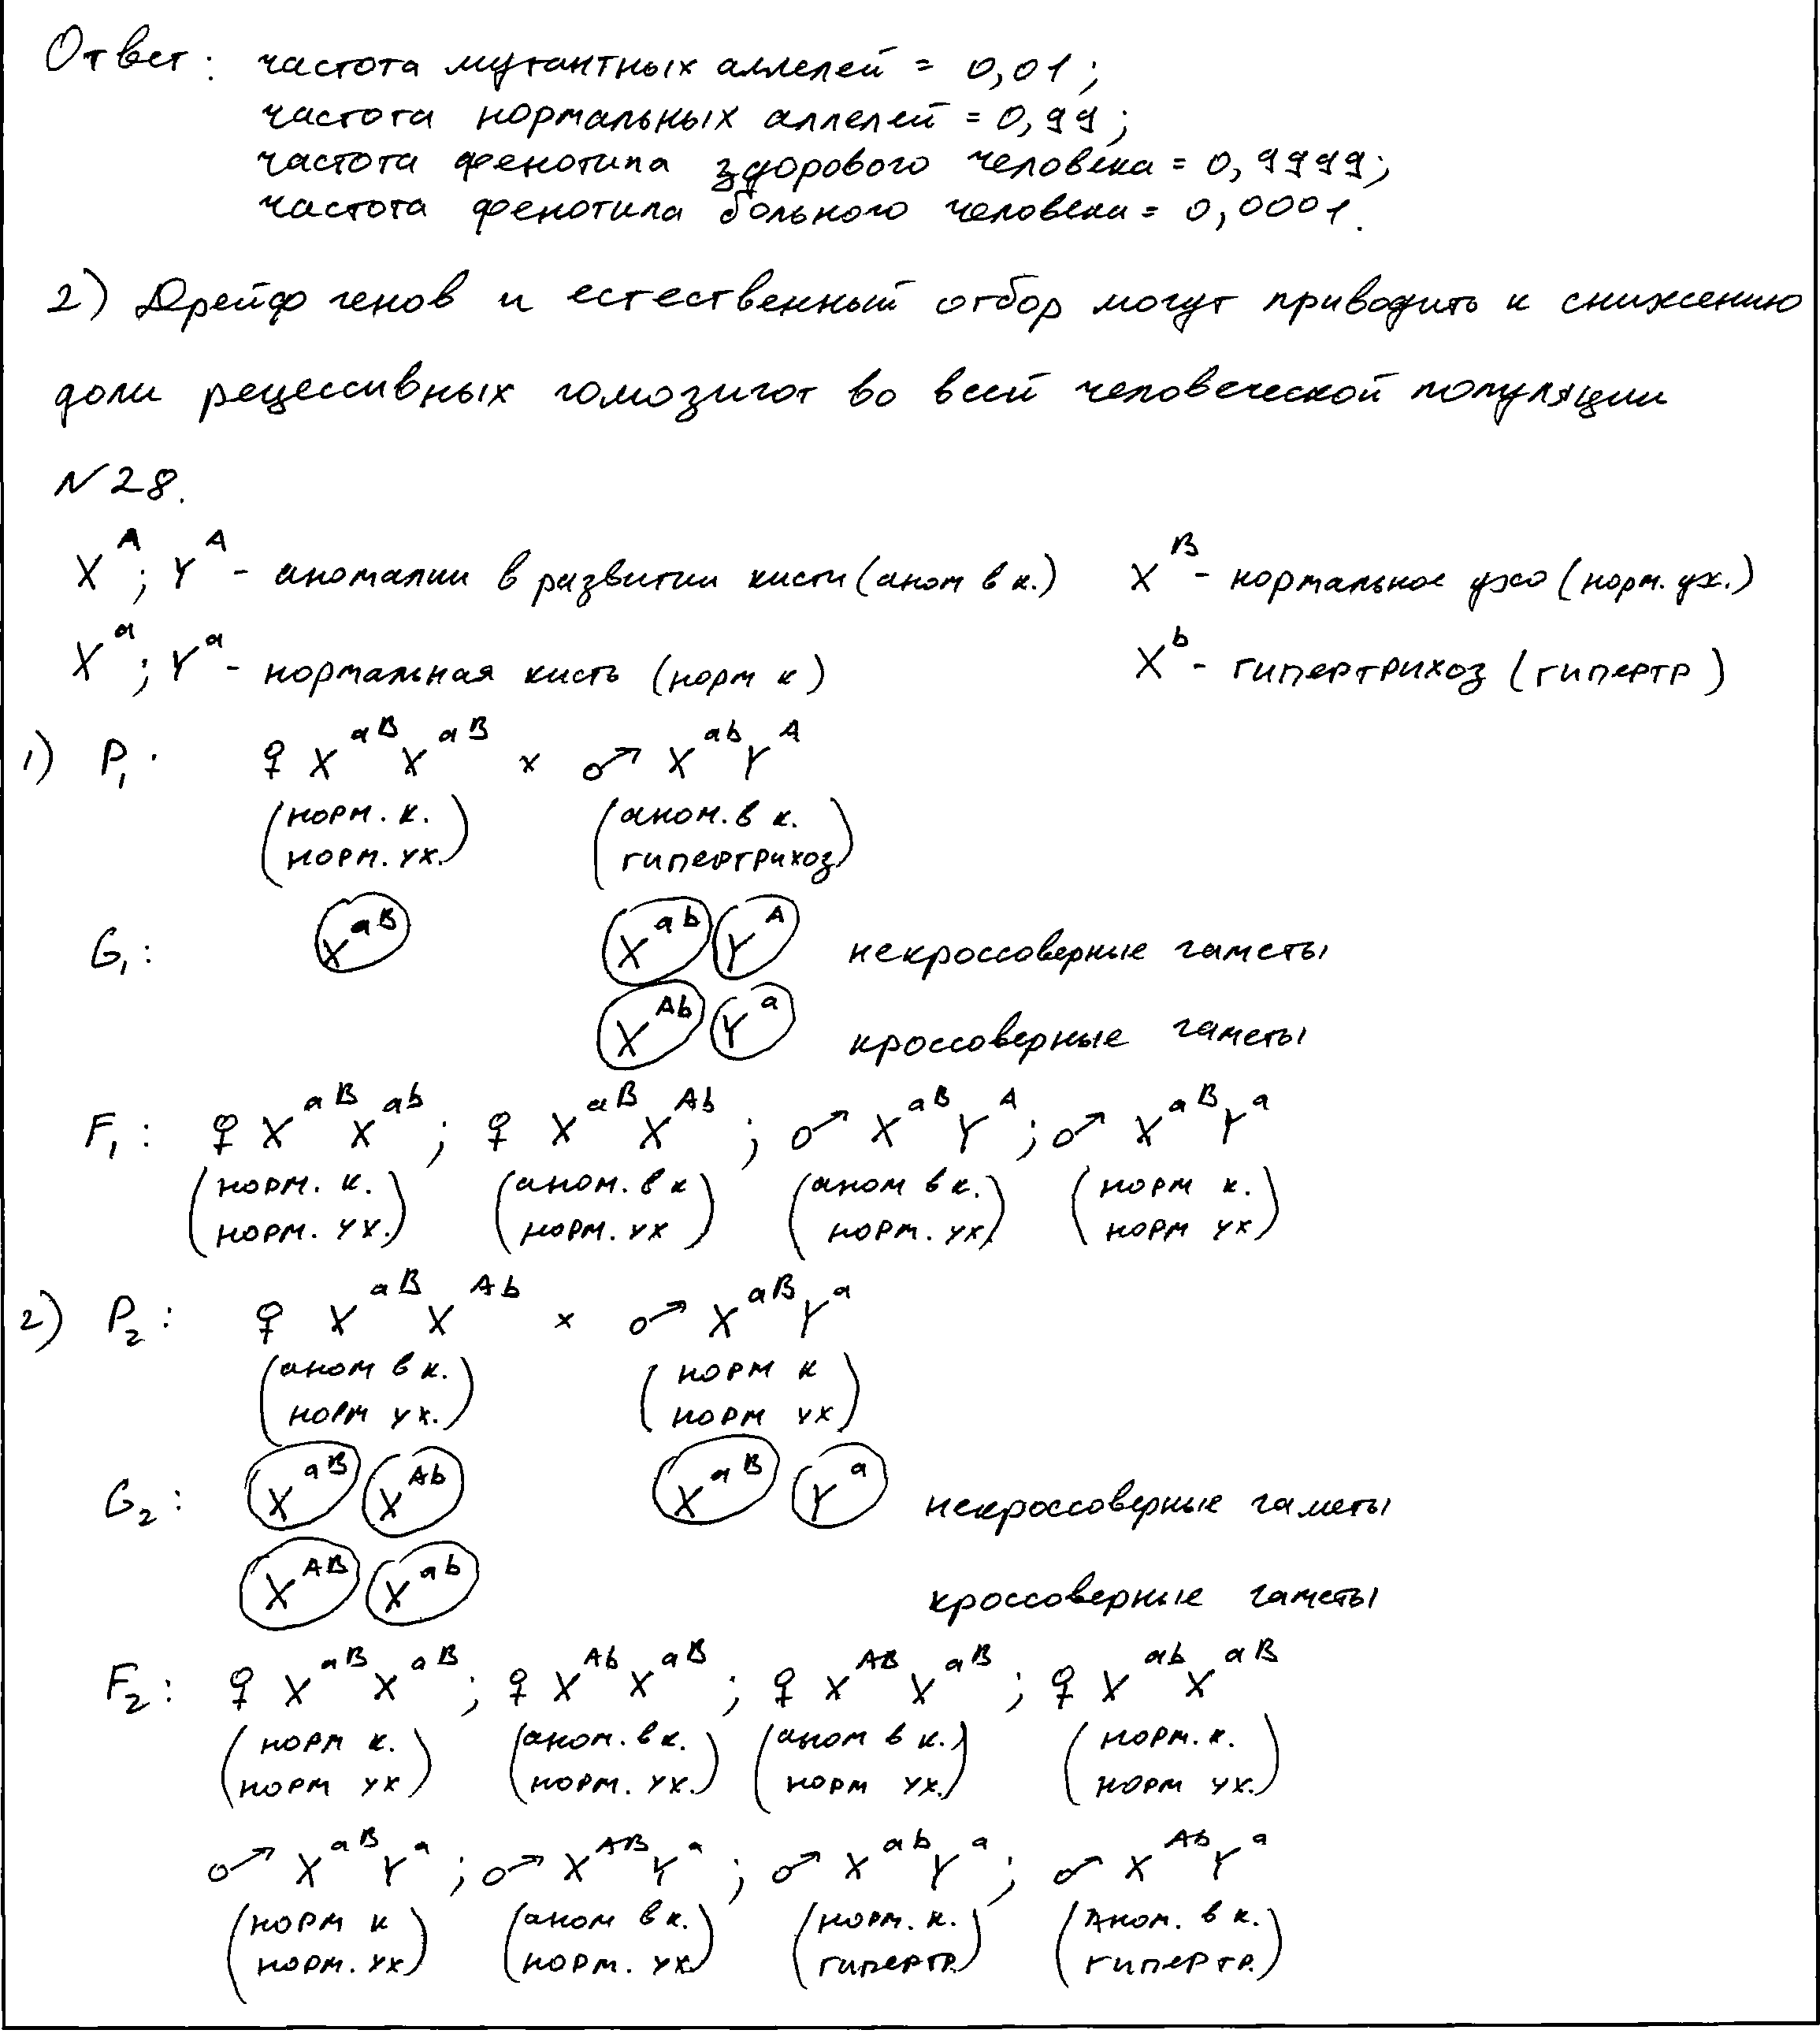 Ответ: частота мутантных аллелей = 0,01;
частота нормальных аллелей = 0,99;
частота фенотипа здорового человека = 0,9999;
частота фенотипа больного человека = 0,0001.
2) Дрейф генов и естественный отбор могут приводить к снижению
доли рецессивных гомозигот во всей человеческой популяции
N28.
X^A; Y^A - аномалии в развитии кисти (аном в к.) X^B - нормальное ухо (норм. ух.)
X^a; Y^a - нормальная кисть (норм к) X^b - гипертрихоз (гипертр)
1) P₁: ♀ X^aB X^aB × ♂ X^ab Y^A
(норм. к. (аном. в к.
норм. ух.) гипертрихоз)
G₁: X^aB X^ab Y^A некроссоверные гаметы
X^Ab Y^a кроссоверные гаметы
F₁: ♀ X^aB X^ab; ♀ X^aB X^Ab; ♂ X^aB Y^A; ♂ X^aB Y^a
(норм. к. (аном. в к (аном в к. (норм к.
норм. ух.) норм. ух) норм. ух) норм ух)
2) P₂: ♀ X^aB X^Ab × ♂ X^aB Y^a
(аном в к. (норм к
норм ух.) норм ух)
G₂: X^aB X^Ab X^aB Y^a некроссоверные гаметы
X^AB X^ab кроссоверные гаметы
F₂: ♀ X^aB X^aB; ♀ X^Ab X^aB; ♀ X^AB X^aB; ♀ X^ab X^aB
(норм к. (аном. в к. (аном в к. (норм. к.
норм ух) норм. ух.) норм ух.) норм ух.)
♂ X^aB Y^a; ♂ X^AB Y^a; ♂ X^ab Y^a; ♂ X^Ab Y^a
(норм к (аном в к. (норм. к. (Аном. в к.
норм. ух) норм. ух) гипертр.) гипертр.)